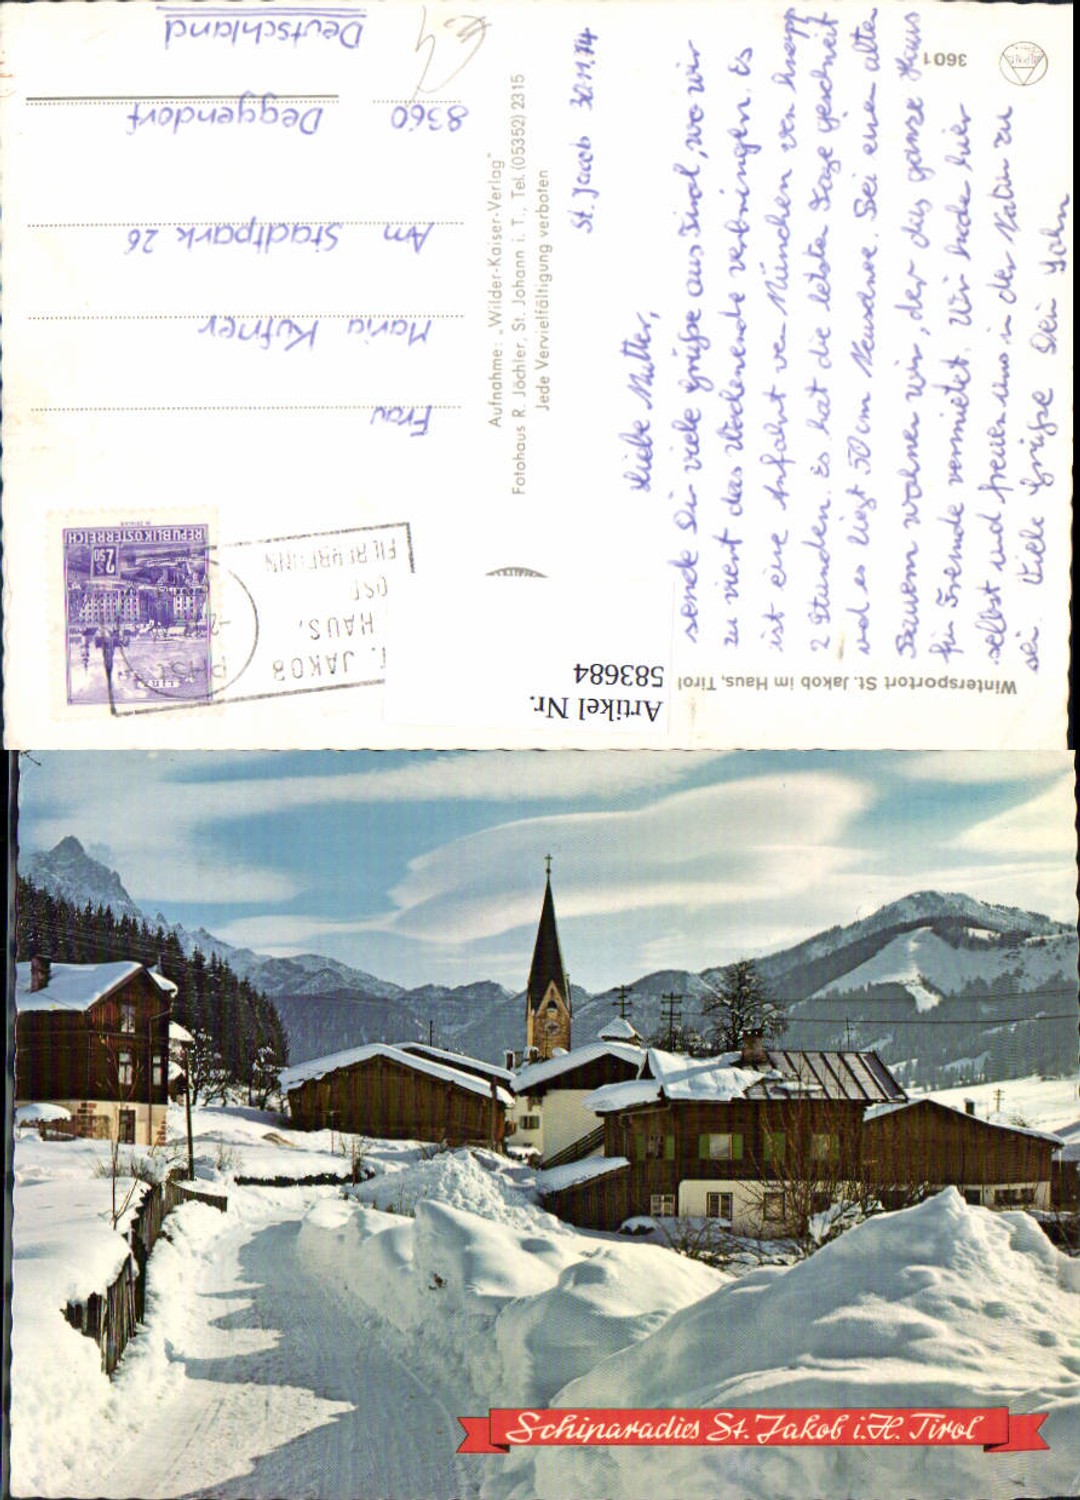 Wintersportort St. Jakob im Haus, Tirol
3601
Artikel Nr.
583684
St. Jacob 30.11.74
Liebe Mutter,
sende Dir viele Grüße aus Tirol, wo wir
zu viert das Wochenende verbringen. Es
ist eine Anfahrt von München von knapp
2 Stunden. Es hat die letzten Tage geschneit
und es liegt 50 cm Neuschnee. Bei einem alten
Bauern wohnen wir, der das ganze Haus
für Fremde vermietet. Wir kochen hier
selbst und freuen uns in der Natur zu
sein. Viele Grüße Dein Sohn
Aufnahme: „Wilder-Kaiser-Verlag"
Fotohaus R. Jöchler, St. Johann i. T., Tel. (05352) 2315
Jede Vervielfältigung verboten
REPUBLIK ÖSTERREICH
2.50
LINZ
T. JAKOB
HAUS,
OST
FIEBERBRUNN
Frau
Maria Kufner
Am Stadtpark 26
8360 Deggendorf
Deutschland
Schiparadies St. Jakob i. H. Tirol